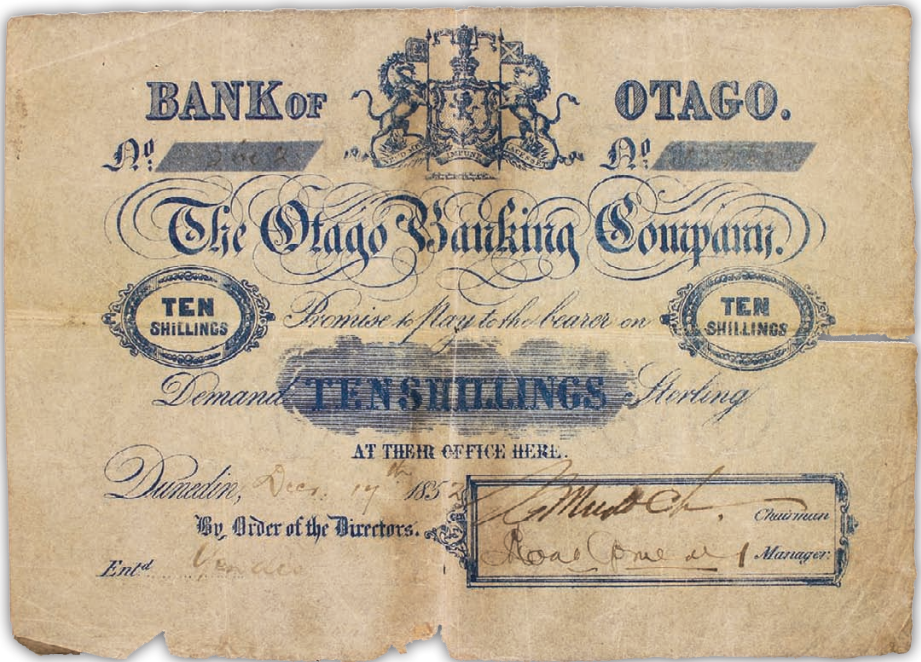 BANK OF OTAGO.
NEMO ME IMPUNE LACESSET
No. No.
The Otago Banking Company.
TEN SHILLINGS Promise to pay to the bearer on TEN SHILLINGS
Demand TEN SHILLINGS Sterling
AT THEIR OFFICE HERE.
Dunedin, Decr. 17th 1852
By Order of the Directors.
Chairman
Manager.
Entd